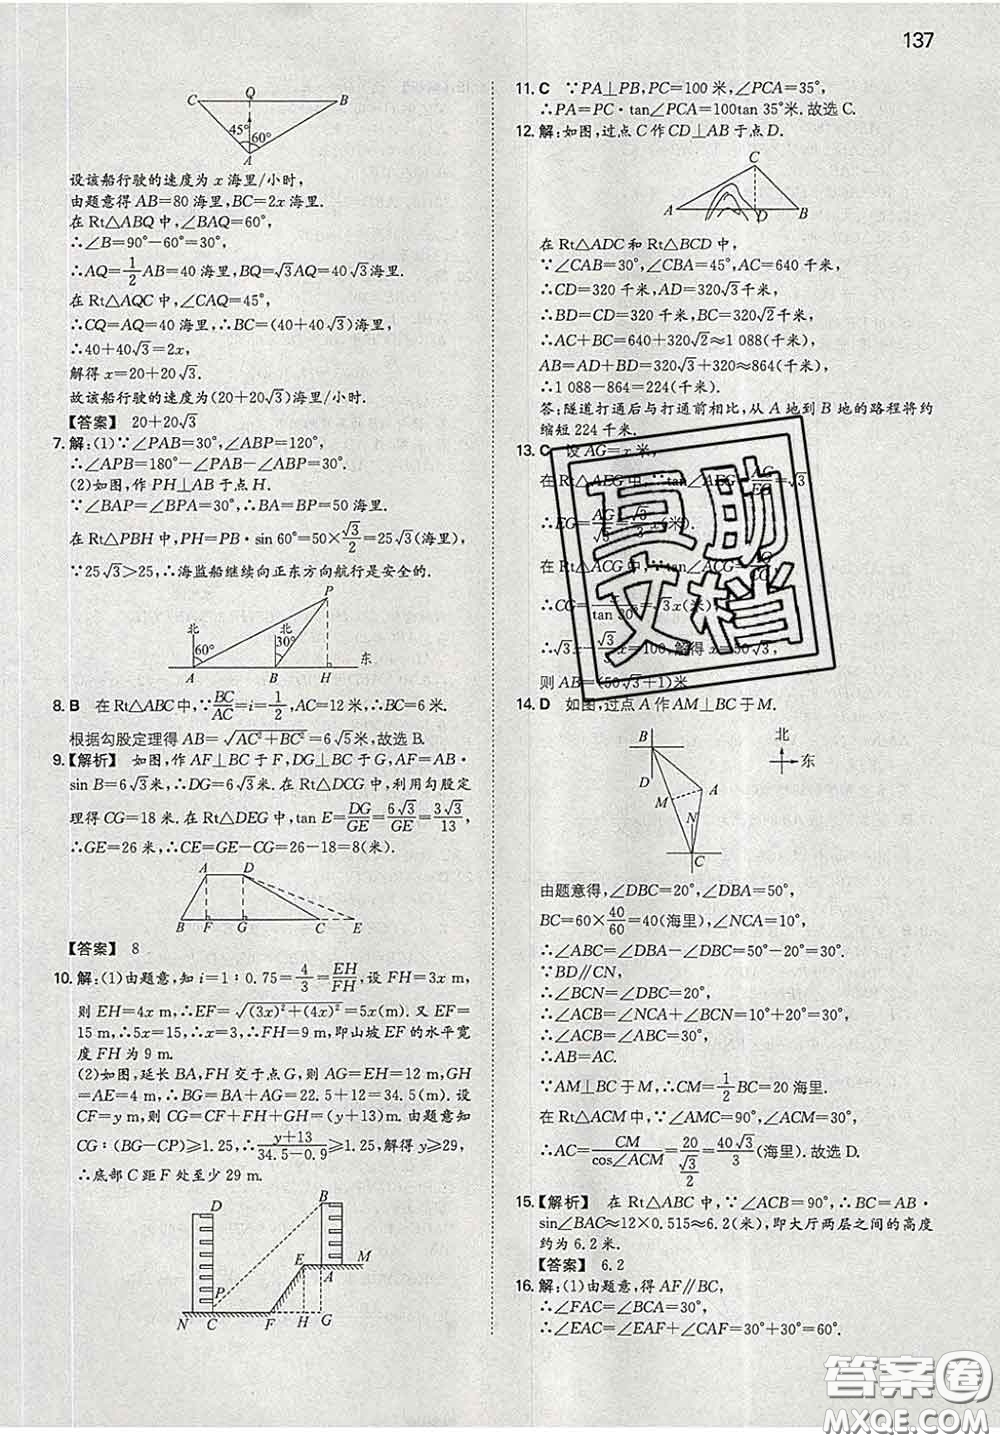 137
C Q B
45° 60°
A
设该船行驶的速度为 x 海里/小时,
由题意得 AB=80 海里,BC=2x 海里.
在 Rt△ABQ 中,∠BAQ=60°,
∴∠B=90°-60°=30°,
∴AQ=1/2AB=40 海里,BQ=√3AQ=40√3 海里.
在 Rt△AQC 中,∠CAQ=45°,
∴CQ=AQ=40 海里,∴BC=(40+40√3)海里,
∴40+40√3=2x,
解得 x=20+20√3.
故该船行驶的速度为(20+20√3)海里/小时.
【答案】 20+20√3
7. 解:(1)∵∠PAB=30°,∠ABP=120°,
∴∠APB=180°-∠PAB-∠ABP=30°.
(2)如图,作 PH⊥AB 于点 H.
∵∠BAP=∠BPA=30°,∴BA=BP=50 海里.
在 Rt△PBH 中,PH=PB·sin 60°=50×√3/2=25√3(海里),
∵25√3>25,∴海监船继续向正东方向航行是安全的.
P
北 北
60° 30° 东
A B H
8. B 在 Rt△ABC 中,∵BC/AC=i=1/2,AC=12 米,∴BC=6 米.
根据勾股定理得 AB=√(AC²+BC²)=6√5米,故选 B.
9.【解析】 如图,作 AF⊥BC 于 F,DG⊥BC 于 G,AF=AB·
sin B=6√3米,∴DG=6√3米.在 Rt△DCG 中,利用勾股定
理得 CG=18 米.在 Rt△DEG 中,tan E=DG/GE=6√3/GE=3√3/13,
∴GE=26 米,∴CE=GE-CG=26-18=8(米).
A D
B F G C E
【答案】 8
10. 解:(1)由题意,知 i=1∶0.75=4/3=EH/FH,设 FH=3x m,
则 EH=4x m,∴EF=√((3x)²+(4x)²)=5x(m).又 EF=
15 m,∴5x=15,∴x=3,∴FH=9 m,即山坡 EF 的水平宽
度 FH 为 9 m.
(2)如图,延长 BA,FH 交于点 G,则 AG=EH=12 m,GH
=AE=4 m,∴BG=BA+AG=22.5+12=34.5(m).设
CF=y m,则 CG=CF+FH+GH=(y+13)m.由题意知
CG∶(BG-CP)≥1.25,∴(y+13)/(34.5-0.9)≥1.25,解得 y≥29,
∴底部 C 距 F 处至少 29 m.
D B
E M
P A
N C F H G
11. C ∵PA⊥PB,PC=100 米,∠PCA=35°,
∴PA=PC·tan∠PCA=100tan 35°米.故选 C.
12. 解:如图,过点 C 作 CD⊥AB 于点 D.
C
A D B
在 Rt△ADC 和 Rt△BCD 中,
∵∠CAB=30°,∠CBA=45°,AC=640 千米,
∴CD=320 千米,AD=320√3千米,
∴BD=CD=320 千米,BC=320√2千米,
∴AC+BC=640+320√2≈1 088(千米),
AB=AD+BD=320√3+320≈864(千米),
∴1 088-864=224(千米).
答:隧道打通后与打通前相比,从 A 地到 B 地的路程将约
缩短 224 千米.
13. C 设 AG=x 米,
在 Rt△AEG 中,∵tan∠AEG=AG/EG=√3
∴EG=AG/√3=√3/3x(米).
在 Rt△ACG 中,∵tan∠ACG=AG/CG
∴CG=x/tan 30°=√3x(米)
∴√3x-√3/3x=100,解得 x=50√3,
则 AB=(50√3+1)米
14. D 如图,过点 A 作 AM⊥BC 于 M.
B 北
D A 东
M N
C
由题意得,∠DBC=20°,∠DBA=50°,
BC=60×40/60=40(海里),∠NCA=10°,
∴∠ABC=∠DBA-∠DBC=50°-20°=30°.
∵BD∥CN,
∴∠BCN=∠DBC=20°,
∴∠ACB=∠ACN+∠BCN=10°+20°=30°,
∴∠ACB=∠ABC=30°,
∴AB=AC.
∵AM⊥BC 于 M,∴CM=1/2BC=20 海里.
在 Rt△ACM 中,∵∠AMC=90°,∠ACM=30°,
∴AC=CM/cos∠ACM=20/(√3/2)=40√3/3(海里).故选 D.
15.【解析】 在 Rt△ABC 中,∵∠ACB=90°,∴BC=AB·
sin∠BAC≈12×0.515≈6.2(米),即大厅两层之间的高度
约为 6.2 米.
【答案】 6.2
16. 解:(1)由题意,得 AF∥BC,
∴∠FAC=∠BCA=30°,
∴∠EAC=∠EAF+∠CAF=30°+30°=60°.
互助文档
答案圈
MXQE.COM